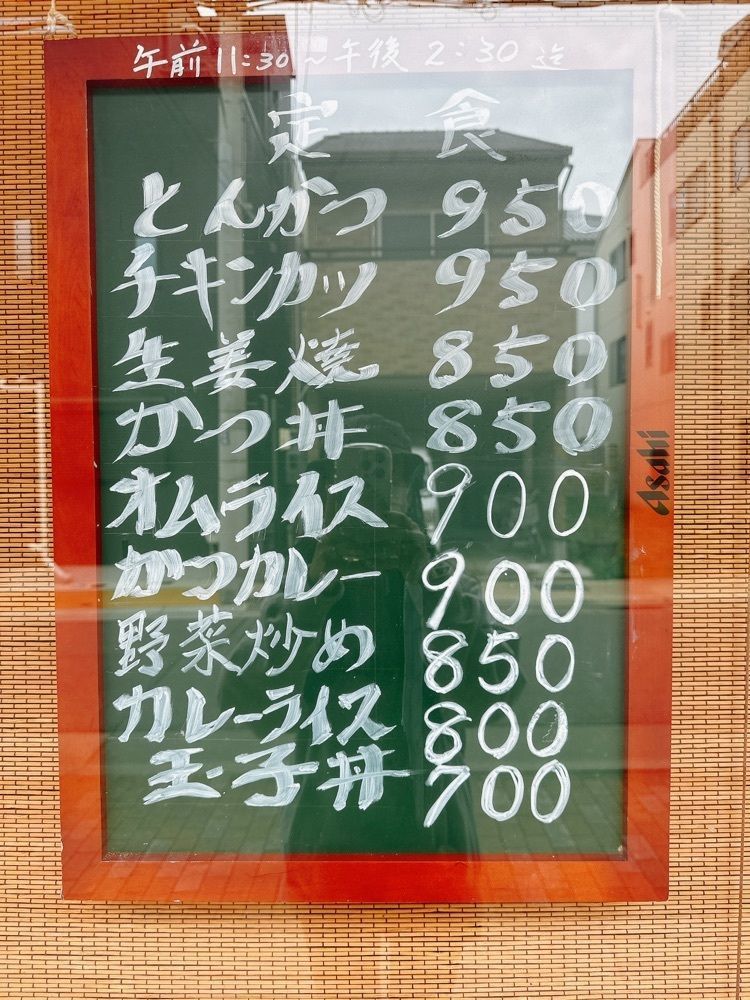 午前11:30〜午後2:30迄
定食
とんかつ 950
チキンカツ 950
生姜焼 850
かつ丼 850
オムライス 900
かつカレー 900
野菜炒め 850
カレーライス 800
玉子丼 700
Asahi